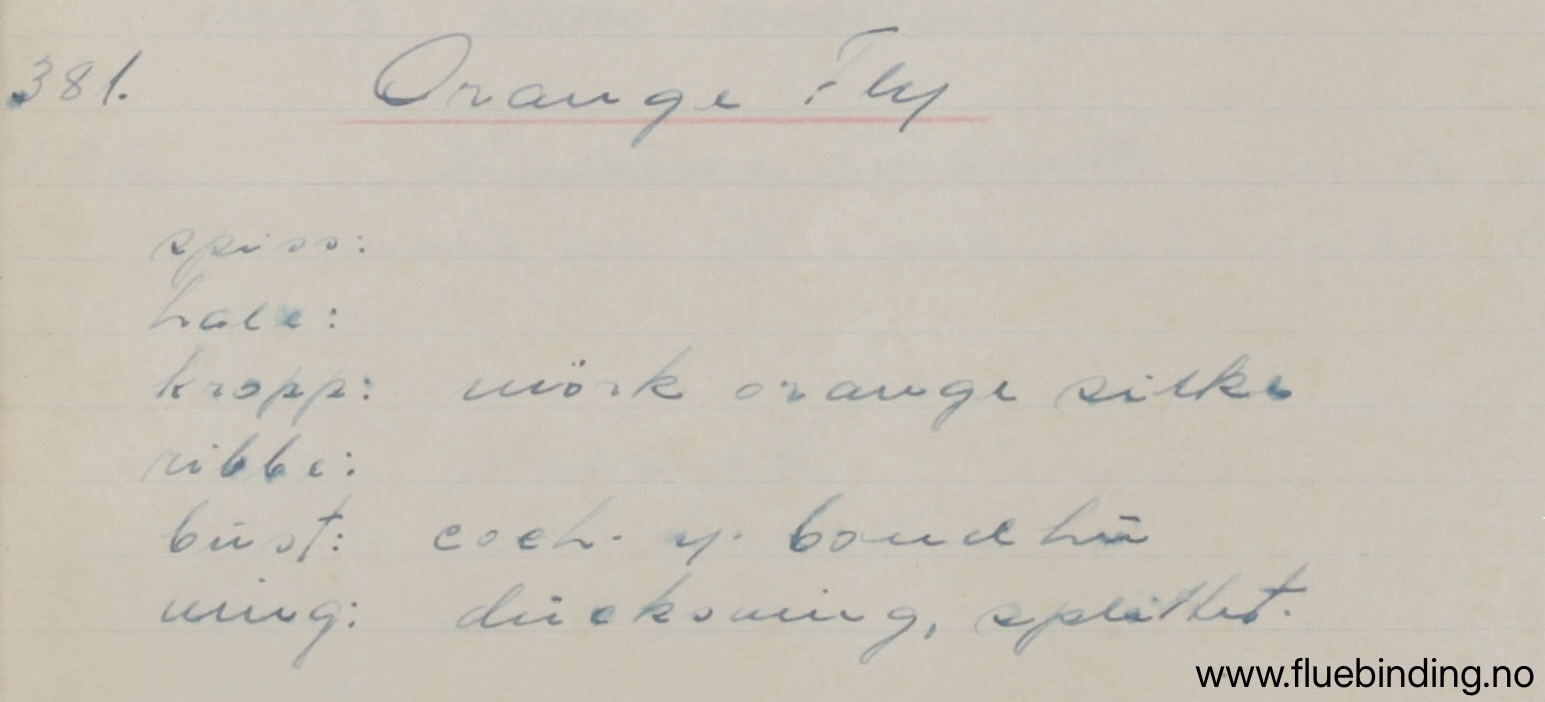 381. Orange Fly
spiss:
hale:
kropp: mörk orange silke
ribbe:
bust: coch. y. bondhu
wing: duckswing, splittet.
www.fluebinding.no